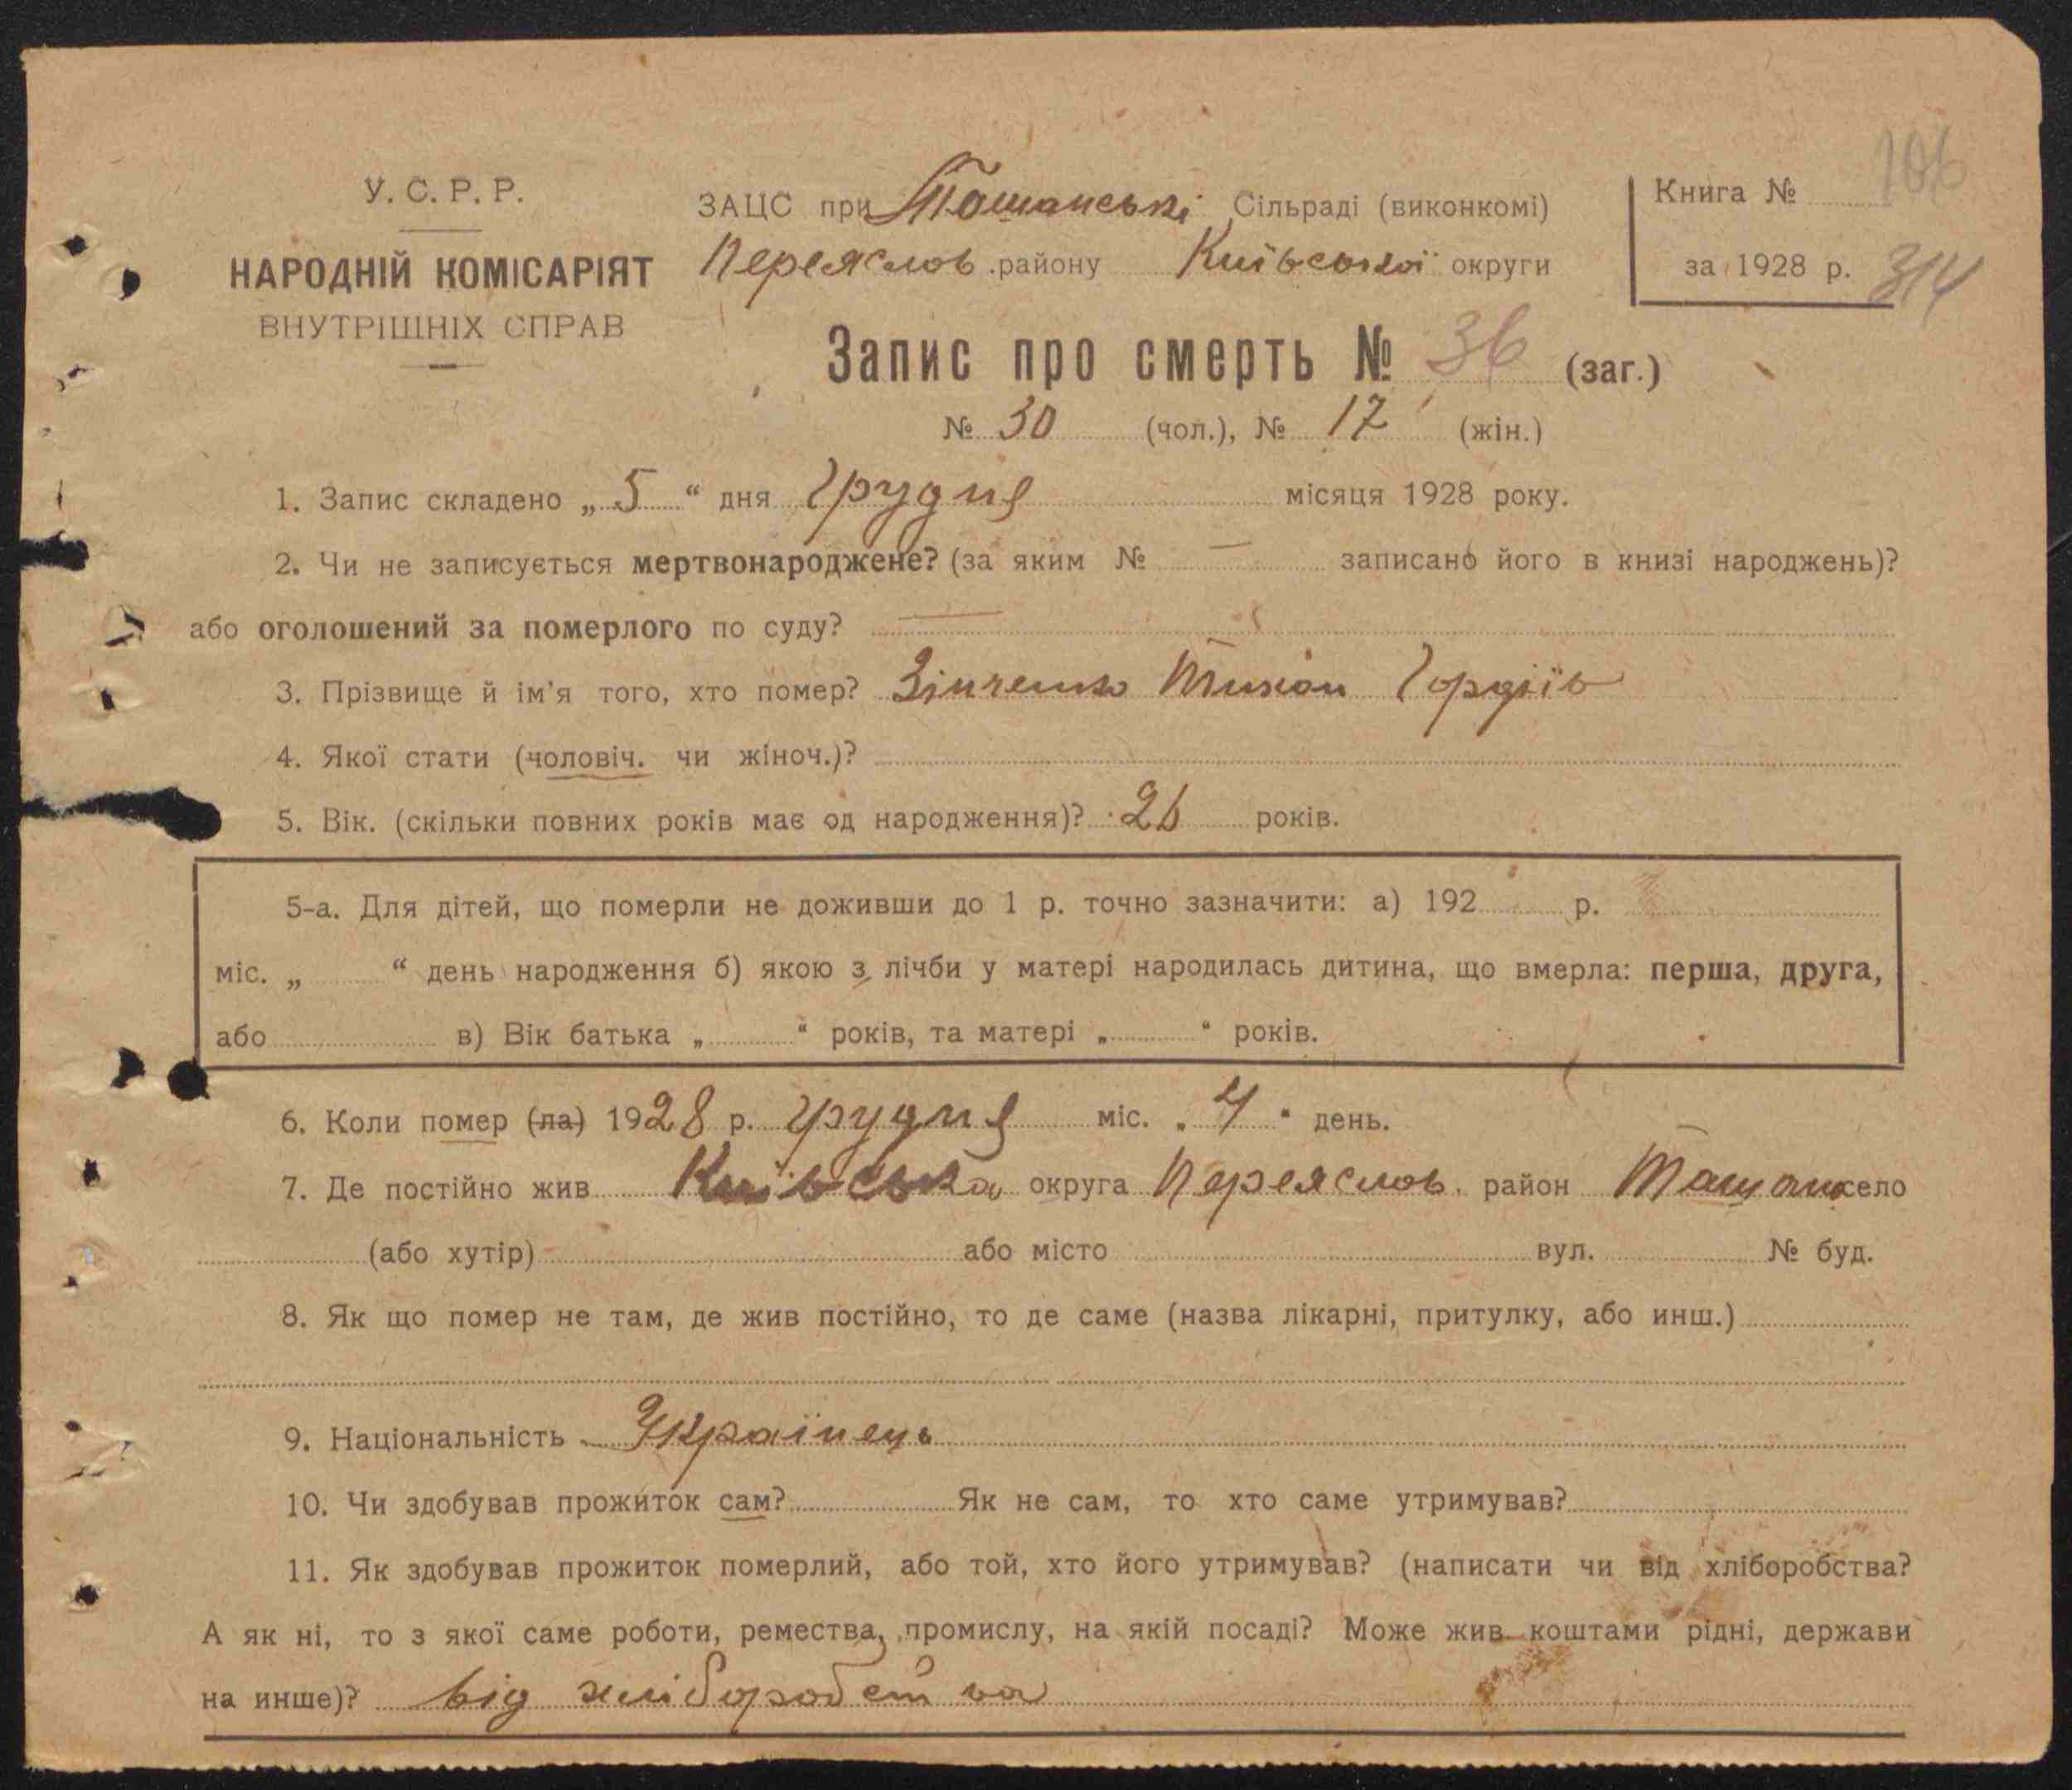 106
У. С. Р. Р.
НАРОДНІЙ КОМІСАРІЯТ
ВНУТРІШНІХ СПРАВ
ЗАЦС при Ташанські Сільраді (виконкомі)
Переяслов. району Київської округи
Книга №
за 1928 р. 314
Запис про смерть № 36 (заг.)
№ 30 (чол.), № 17 (жін.)
1. Запис складено „ 5 “ дня грудня місяця 1928 року.
2. Чи не записується мертвонароджене? (за яким № — записано його в книзі народжень)?
або оголошений за померлого по суду? —
3. Прізвище й ім’я того, хто помер? Зінченко Тихон Гордіїв
4. Якої стати (чоловіч. чи жіноч.)?
5. Вік. (скільки повних років має од народження)? 26 років.
5-а. Для дітей, що померли не доживши до 1 р. точно зазначити: а) 192 р.
міс. „ “ день народження б) якою з лічби у матері народилась дитина, що вмерла: перша, друга,
або в) Вік батька „ “ років, та матері „ “ років.
6. Коли помер (ла) 1928 р. грудня міс. „ 4 “ день.
7. Де постійно жив Київська округа Переяслов. район Ташань село
(або хутір) або місто вул. № буд.
8. Як що помер не там, де жив постійно, то де саме (назва лікарні, притулку, або инш.)
9. Національність Українець
10. Чи здобував прожиток сам? Як не сам, то хто саме утримував?
11. Як здобував прожиток померлий, або той, хто його утримував? (написати чи від хліборобства?
А як ні, то з якої саме роботи, ремества, промислу, на якій посаді? Може жив коштами рідні, держави
на инше)? від хліборобства